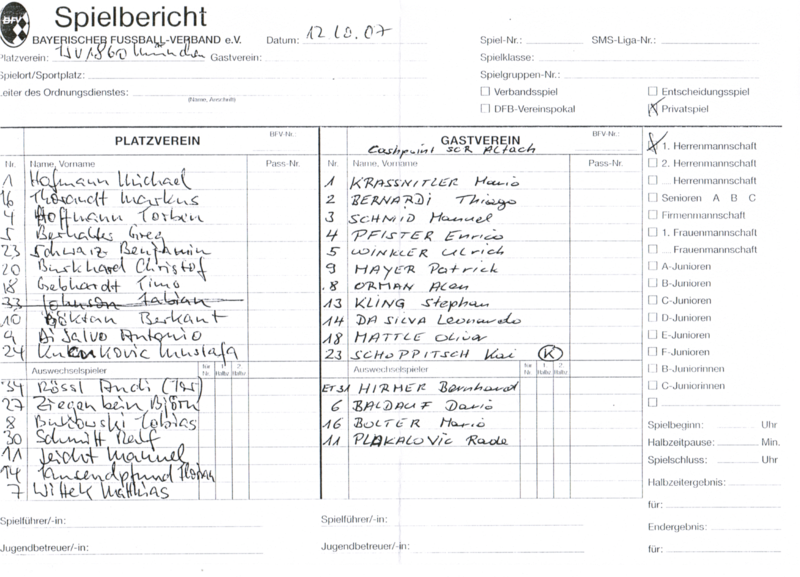 BFV
Spielbericht
BAYERISCHER FUSSBALL-VERBAND e.V. Datum: 12.10.07 Spiel-Nr.: SMS-Liga-Nr.:
Platzverein: TSV 1860 München Gastverein: Spielklasse:
Spielort/Sportplatz: Spielgruppen-Nr.:
Leiter des Ordnungsdienstes: Verbandsspiel Entscheidungsspiel
(Name, Anschrift) DFB-Vereinspokal Privatspiel
PLATZVEREIN BFV-Nr.:
Nr. Name, Vorname Pass-Nr.
1 Hofmann Michael
16 Thorandt Markus
4 Hoffmann Torben
5 Berhalter Greg
23 Schwarz Benjamin
20 Burkhard Christof
18 Gebhardt Timo
33 Johnson Fabian
10 Göktan Berkant
9 Di Salvo Antonio
24 Kucukovic Mustafa
Auswechselspieler für Nr. 1. Halbz. 2. Halbz.
34 Rössl Andi (Tor)
27 Ziegenbein Björn
8 Bukowski Tobias
30 Schmitt Ralf
11 Leidet Manuel
14 Tausendpfund Florian
7 Wittek Matthias
Spielführer/-in:
Jugendbetreuer/-in:
GASTVEREIN BFV-Nr.:
Cashpoint SCR Altach
Nr. Name, Vorname Pass-Nr.
1 KRASSNITLER Mario
2 BERNARDI Thiago
3 SCHMID Manuel
4 PFISTER Enrico
5 WINKLER Ulrich
9 MAYER Patrick
8 ORMAN Alen
13 KLING Stephan
14 DA SILVA Leonardo
18 MATTLE Oliver
23 SCHOPPITSCH Kai K
Auswechselspieler für Nr. 1. Halbz. 2. Halbz.
ET31 HIRMER Bernhard
6 BALDAUF Dario
16 BOLTER Mario
11 PLAKALOVIC Rade
Spielführer/-in:
Jugendbetreuer/-in:
1. Herrenmannschaft
2. Herrenmannschaft
Herrenmannschaft
Senioren A B C
Firmenmannschaft
1. Frauenmannschaft
Frauenmannschaft
A-Junioren
B-Junioren
C-Junioren
D-Junioren
E-Junioren
F-Junioren
B-Juniorinnen
C-Juniorinnen
Spielbeginn: Uhr
Halbzeitpause: Min.
Spielschluss: Uhr
Halbzeitergebnis:
für:
Endergebnis:
für: